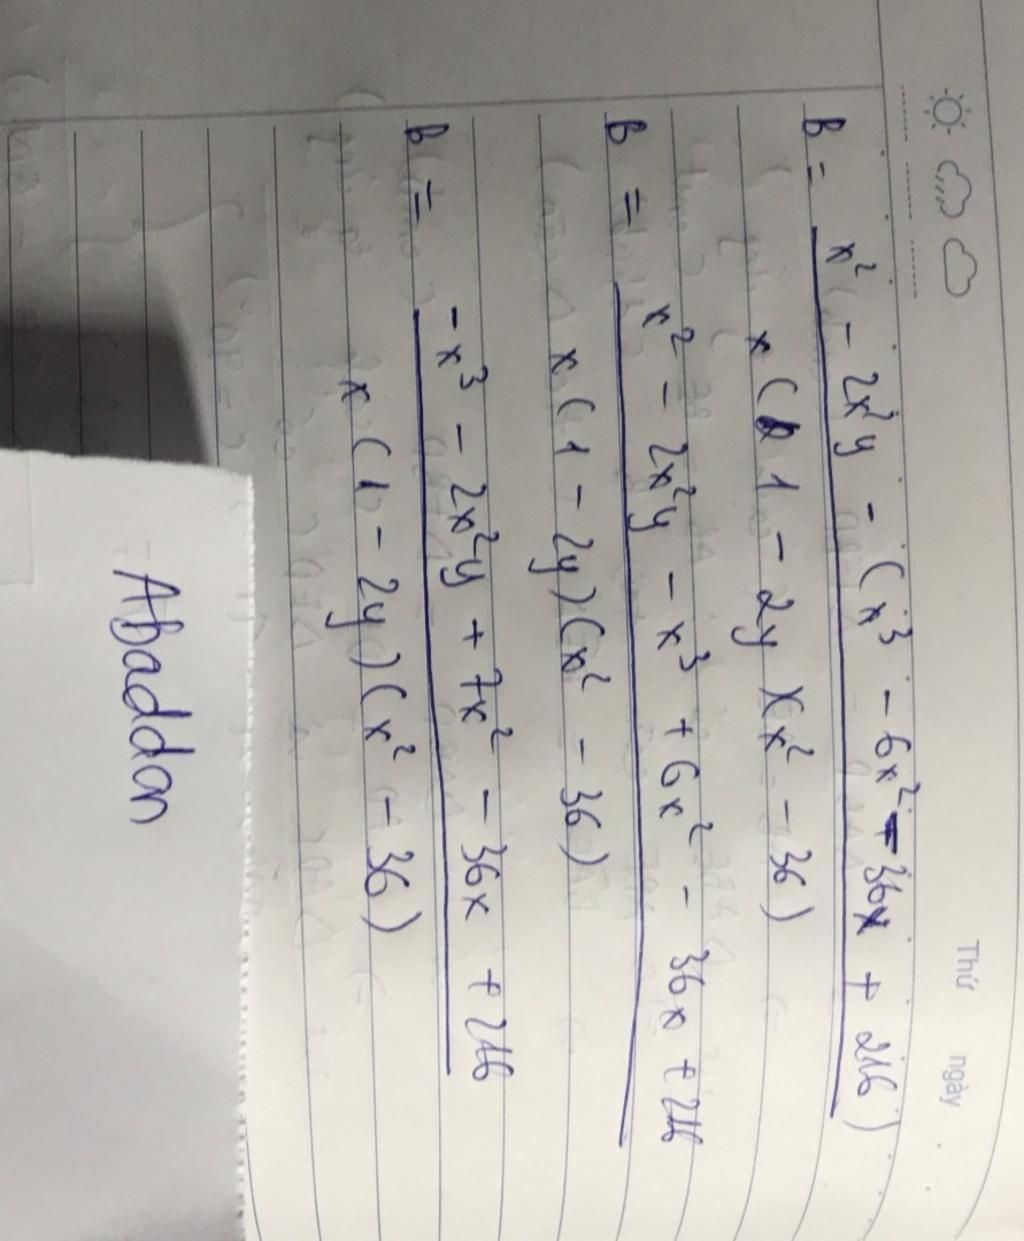 Thứ ngày
B = x² - 2x²y - (x³ - 6x² - 36x + 216)
x(1 - 2y)(x² - 36)
B = x² - 2x²y - x³ + 6x² - 36x + 216
x(1 - 2y)(x² - 36)
B = -x³ - 2x²y + 7x² - 36x + 216
x(1 - 2y)(x² - 36)
Abaddon